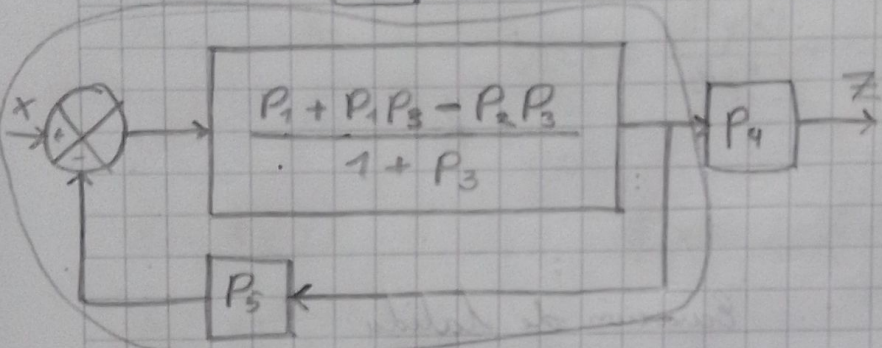 x
+
-
P₁ + P₁P₃ - P₂P₃
1 + P₃
P₄
Z
P₅